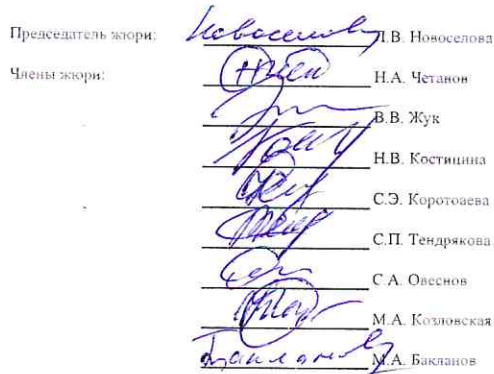 Председатель жюри: Новоселова Л.В. Новоселова
Члены жюри: Н.А. Четанов
В.В. Жук
Н.В. Костицина
С.Э. Коротоаева
С.П. Тендрякова
С.А. Овеснов
М.А. Козловская
Бакланов М.А. Бакланов